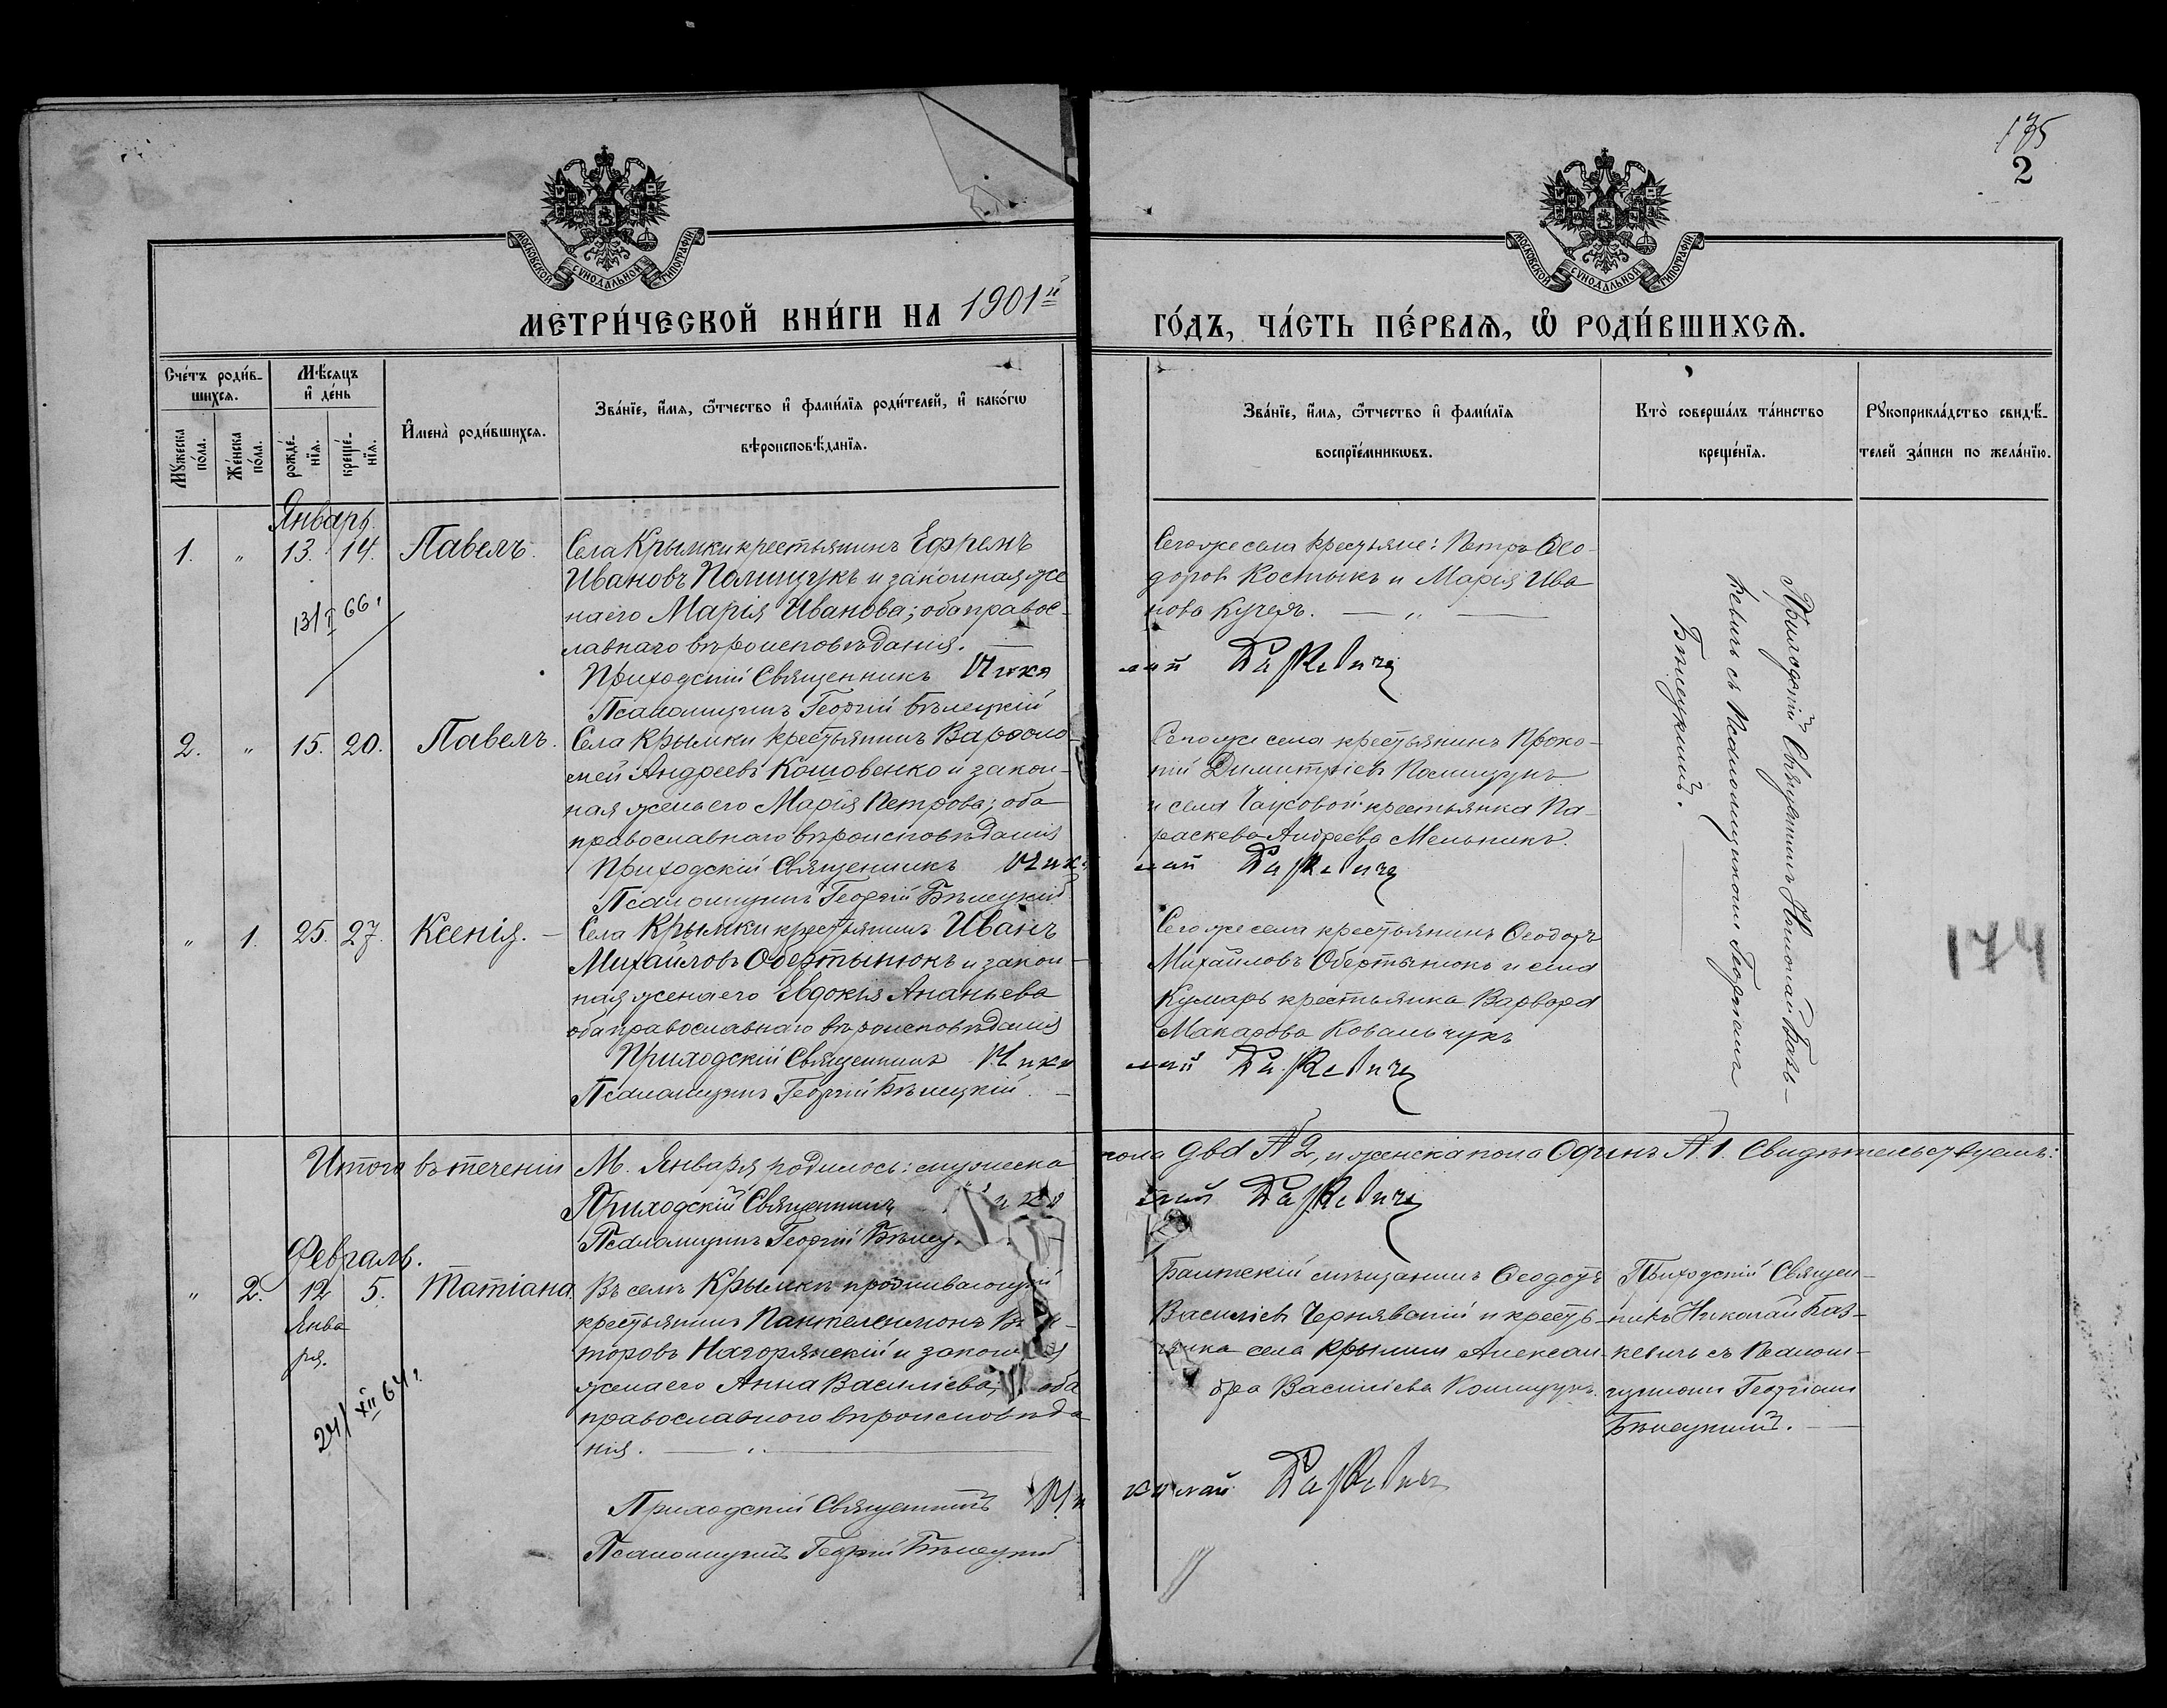 175
2
МОСКОВСКОЙ СѴНОДАЛЬНОЙ ТИПОГРАФІИ
МОСКОВСКОЙ СѴНОДАЛЬНОЙ ТИПОГРАФІИ
МЕТРИ́ЧЕСКОЙ КНИ́ГИ НА 1901й
ГО́ДЪ, ЧА́СТЬ ПЕ́РВАѦ, Ѽ РОДИ́ВШИХСѦ.
Сче́тъ роди́в-
шихсѧ.
Мꙋ́жеска
по́ла.
Же́нска
по́ла.
Мѣ́сѧцъ
и҆ де́нь
рожде́-
нїѧ.
креще́-
нїѧ.
И҆мена̀ роди́вшихсѧ.
Зва́нїе, и҆́мѧ, ѻ҆́тчество и҆ фами́лїѧ роди́телей, и҆ како́гѡ
вѣроисповѣ́данїѧ.
Зва́нїе, и҆́мѧ, ѻ҆́тчество и҆ фами́лїѧ
воспрїе́мникѡвъ.
Кто̀ соверша́лъ та́инство
креще́нїѧ.
Рꙋкоприкла́дство свидѣ́-
телей за́писи по жела́нїю.
Январь.
1. „ 13. 14. Павелъ.
13/I 66.
Села Крымки крестьянинъ Ефремъ
Ивановъ Полищукъ и законная же
на его Марія Иванова; оба правос-
лавнаго вѣроисповѣданія.
Приходскій Священникъ Нико
Псаломщикъ Георгій Бѣлецкій
Сегоже села крестьяне: Петръ Ѳео-
доровъ Костыкъ и Марія Ива
нова Кучеръ. — „ —
лай Базкевичъ
2. „ 15. 20. Павелъ.
Села Крымки крестьянинъ Варѳоло
мей Андреевъ Кошовенко и закон-
ная жена его Марія Петрова; оба
православнаго вѣроисповѣданія
Приходскій Священникъ Нико
Псаломщикъ Георгій Бѣлецкій
Сегоже села крестьянинъ Проко-
пій Димитріевъ Полищукъ
и села Чаусовой крестьянка Па-
раскева Андреева Мельникъ.
лай Базкевичъ
„ 1. 25. 27. Ксенія. —
Села Крымки крестьянинъ Иванъ
Михайловъ Обертынюкъ и закон-
ная жена его Евдокія Ананьева
оба православнаго вѣроисповѣданія
Приходскій Священникъ Нико
Псаломщикъ Георгій Бѣлецкій. —
Сего же села крестьянинъ Ѳеодоръ
Михайловъ Обертынюкъ и села
Кумаръ крестьянка Варвара
Макарова Ковальчукъ
лай Базкевичъ
Приходскій Священникъ Николай Баз-
кевичъ съ Псаломщикомъ Георгіемъ
Бѣлецкимъ.
174
Итого въ теченіи М. Января родилось: мужеска
пола два № 2, и женска пола Одинъ № 1. Свидѣтельствуемъ:
Приходскій Священникъ Нико
Псаломщикъ Георгій Бѣлец
лай Базкевичъ
Февраль.
„ 2. 12 5. Татіана.
Янва
ря.
24/XII 64.
Въ селѣ Крымкѣ проживающій
крестьянинъ Пантелеимонъ
торовъ Нагорянскій и законная
жена его Анна Василіева; оба
православного вѣроисповѣда
нія. — „ —
Приходскій Священникъ Ни
Псаломщикъ Георгій Бѣлецкій
Балтскій мѣщанинъ Ѳеодотъ
Василіевъ Чернявскій и кресть-
янка села Крымки Алексан-
дра Василіева
колай Базкевичъ
Приходскій Священ-
никъ Николай Баз-
кевичъ съ Псалом-
щикомъ Георгіемъ
Бѣлецкимъ. —